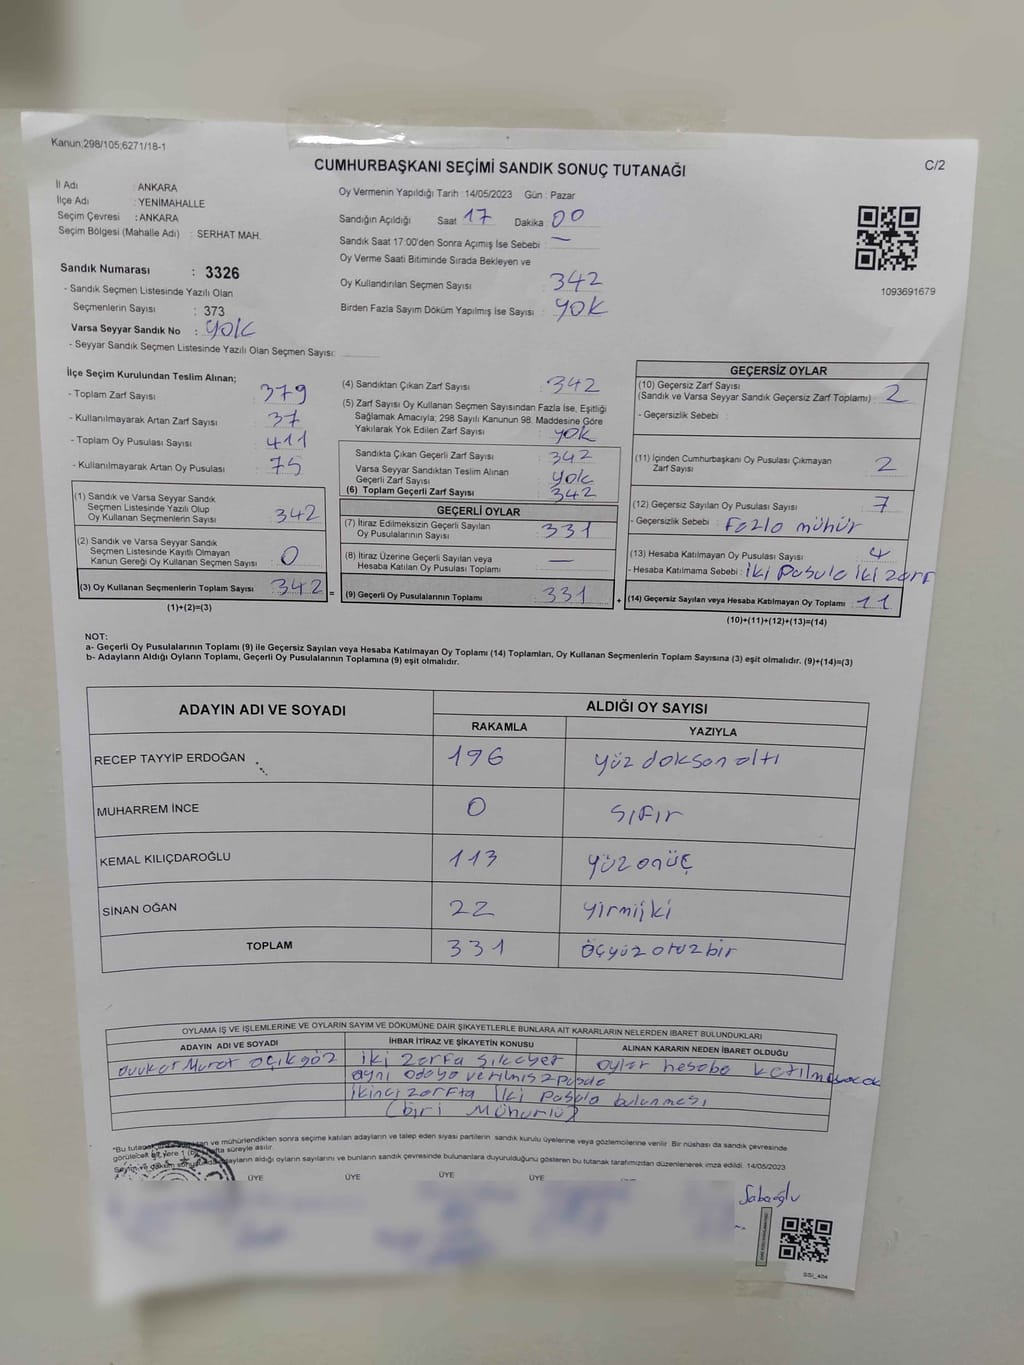 Kanun;298/105;6271/18-1
C/2
CUMHURBAŞKANI SEÇİMİ SANDIK SONUÇ TUTANAĞI
İl Adı : ANKARA
İlçe Adı : YENİMAHALLE
Seçim Çevresi : ANKARA
Seçim Bölgesi (Mahalle Adı) : SERHAT MAH.
Sandık Numarası : 3326
- Sandık Seçmen Listesinde Yazılı Olan
Seçmenlerin Sayısı : 373
Varsa Seyyar Sandık No : yok
- Seyyar Sandık Seçmen Listesinde Yazılı Olan Seçmen Sayısı:
Oy Vermenin Yapıldığı Tarih :14/05/2023 Gün : Pazar
Sandığın Açıldığı Saat 17 Dakika 00
Sandık Saat 17:00'den Sonra Açımış İse Sebebi : —
Oy Verme Saati Bitiminde Sırada Bekleyen ve
Oy Kullandırılan Seçmen Sayısı : 342
Birden Fazla Sayım Döküm Yapılmış İse Sayısı : yok
1093691679
İlçe Seçim Kurulundan Teslim Alınan;
- Toplam Zarf Sayısı : 379
- Kullanılmayarak Artan Zarf Sayısı : 37
- Toplam Oy Pusulası Sayısı : 411
- Kullanılmayarak Artan Oy Pusulası : 75
(1) Sandık ve Varsa Seyyar Sandık
Seçmen Listesinde Yazılı Olup
Oy Kullanan Seçmenlerin Sayısı : 342
(2) Sandık ve Varsa Seyyar Sandık
Seçmen Listesinde Kayıtlı Olmayan
Kanun Gereği Oy Kullanan Seçmen Sayısı : 0
(3) Oy Kullanan Seçmenlerin Toplam Sayısı : 342 =
(1)+(2)=(3)
(4) Sandıktan Çıkan Zarf Sayısı : 342
(5) Zarf Sayısı Oy Kullanan Seçmen Sayısından Fazla İse, Eşitliği
Sağlamak Amacıyla; 298 Sayılı Kanunun 98. Maddesine Göre
Yakılarak Yok Edilen Zarf Sayısı : yok
Sandıkta Çıkan Geçerli Zarf Sayısı : 342
Varsa Seyyar Sandıktan Teslim Alınan
Geçerli Zarf Sayısı : yok
(6) Toplam Geçerli Zarf Sayısı : 342
GEÇERLİ OYLAR
(7) İtiraz Edilmeksizin Geçerli Sayılan
Oy Pusulalarının Sayısı : 331
(8) İtiraz Üzerine Geçerli Sayılan veya
Hesaba Katılan Oy Pusulası Toplamı : —
(9) Geçerli Oy Pusulalarının Toplamı : 331 +
GEÇERSİZ OYLAR
(10) Geçersiz Zarf Sayısı
(Sandık ve Varsa Seyyar Sandık Geçersiz Zarf Toplamı) : 2
- Geçersizlik Sebebi :
(11) İçinden Cumhurbaşkanı Oy Pusulası Çıkmayan
Zarf Sayısı : 2
(12) Geçersiz Sayılan Oy Pusulası Sayısı : 7
- Geçersizlik Sebebi : Fazla mühür
(13) Hesaba Katılmayan Oy Pusulası Sayısı : 4
- Hesaba Katılmama Sebebi : İki Pusula iki zarf
(14) Geçersiz Sayılan veya Hesaba Katılmayan Oy Toplamı : 11
(10)+(11)+(12)+(13)=(14)
NOT:
a- Geçerli Oy Pusulalarının Toplamı (9) ile Geçersiz Sayılan veya Hesaba Katılmayan Oy Toplamı (14) Toplamları, Oy Kullanan Seçmenlerin Toplam Sayısına (3) eşit olmalıdır. (9)+(14)=(3)
b- Adayların Aldığı Oyların Toplamı, Geçerli Oy Pusulalarının Toplamına (9) eşit olmalıdır.
ADAYIN ADI VE SOYADI ALDIĞI OY SAYISI
RAKAMLA YAZIYLA
RECEP TAYYİP ERDOĞAN 196 yüz doksan altı
MUHARREM İNCE 0 sıfır
KEMAL KILIÇDAROĞLU 113 yüz onüç
SİNAN OĞAN 22 yirmi iki
TOPLAM 331 Üçyüz otuz bir
OYLAMA İŞ VE İŞLEMLERİNE VE OYLARIN SAYIM VE DÖKÜMÜNE DAİR ŞİKAYETLERLE BUNLARA AİT KARARLARIN NELERDEN İBARET BULUNDUKLARI
ADAYIN ADI VE SOYADI İHBAR İTİRAZ VE ŞİKAYETİN KONUSU ALINAN KARARIN NEDEN İBARET OLDUĞU
avukat Murat açıkgöz iki zarfa oylar hesaba katılmayacak
aynı adaya verilmiş 2
ikinci zarfta iki Pusula bulunması
(biri Mühürlü)
seçime katılan adayların ve talep eden siyasi partilerin sandık kurulu üyelerine veya gözlemcilerine verilir. Bir nüshası da sandık çevresinde
aldığı oyların sayılarını ve bunların sandık çevresinde bulunanlara duyurulduğunu gösteren bu tutanak tarafımızdan düzenlenerek imza edildi. 14/05/2023
ÜYE ÜYE ÜYE ÜYE
SSİ_404